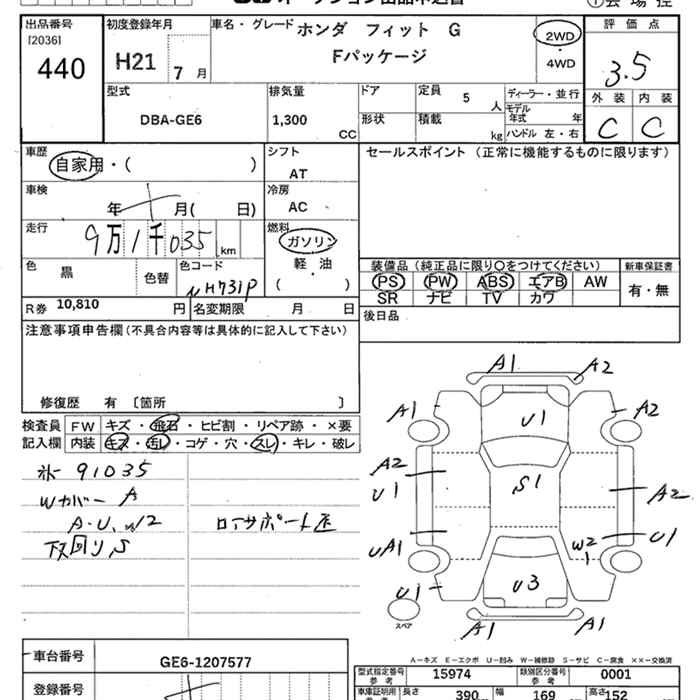 出品番号
[2036]
440
初度登録年月
H21 7 月
車名・グレード ホンダ フィット G
Fパッケージ
2WD
・
4WD
評価点
3.5
外装 内装
C C
型式
DBA-GE6
排気量
1,300
CC
ドア
形状
定員 5 人
積載 kg
ディーラー・並行
モデル
年式 年
ハンドル 左・右
車歴
自家用・( )
シフト
AT
セールスポイント(正常に機能するものに限ります)
車検
年 月( 日)
冷房
AC
走行
9万1千035 km
燃料
ガソリン
軽・油
( )
色 黒 色替
色コード
NH731P
装備品(純正品に限り○をつけてください)
PS PW ABS エアB AW
SR ナビ TV カワ
新車保証書
有・無
R券 10,810 円
名変期限 月 日
後日品
注意事項申告欄(不具合内容等は具体的に記入して下さい)
修復歴 有 〔箇所 〕
検査員
記入欄
FW キズ・飛石・ヒビ割・リペア跡・×要
内装 キズ・汚レ・コゲ・穴・スレ・キレ・破レ
91035
Wカバー A
A・U、W2
下回り、S
A1 A2
A1 U1 A2
A2
U1
S1
A2
UA1 W2 U1
U1 U3
A1 A1
スペア
A-キズ E-エクボ U-凹み W-補修跡 S-サビ C-腐食 ××-交換済
車台番号
GE6-1207577
登録番号
型式指定番号
参考
15974
類別区分番号
参考
0001
車庫証明用
長さ 390
幅 169
高さ 152